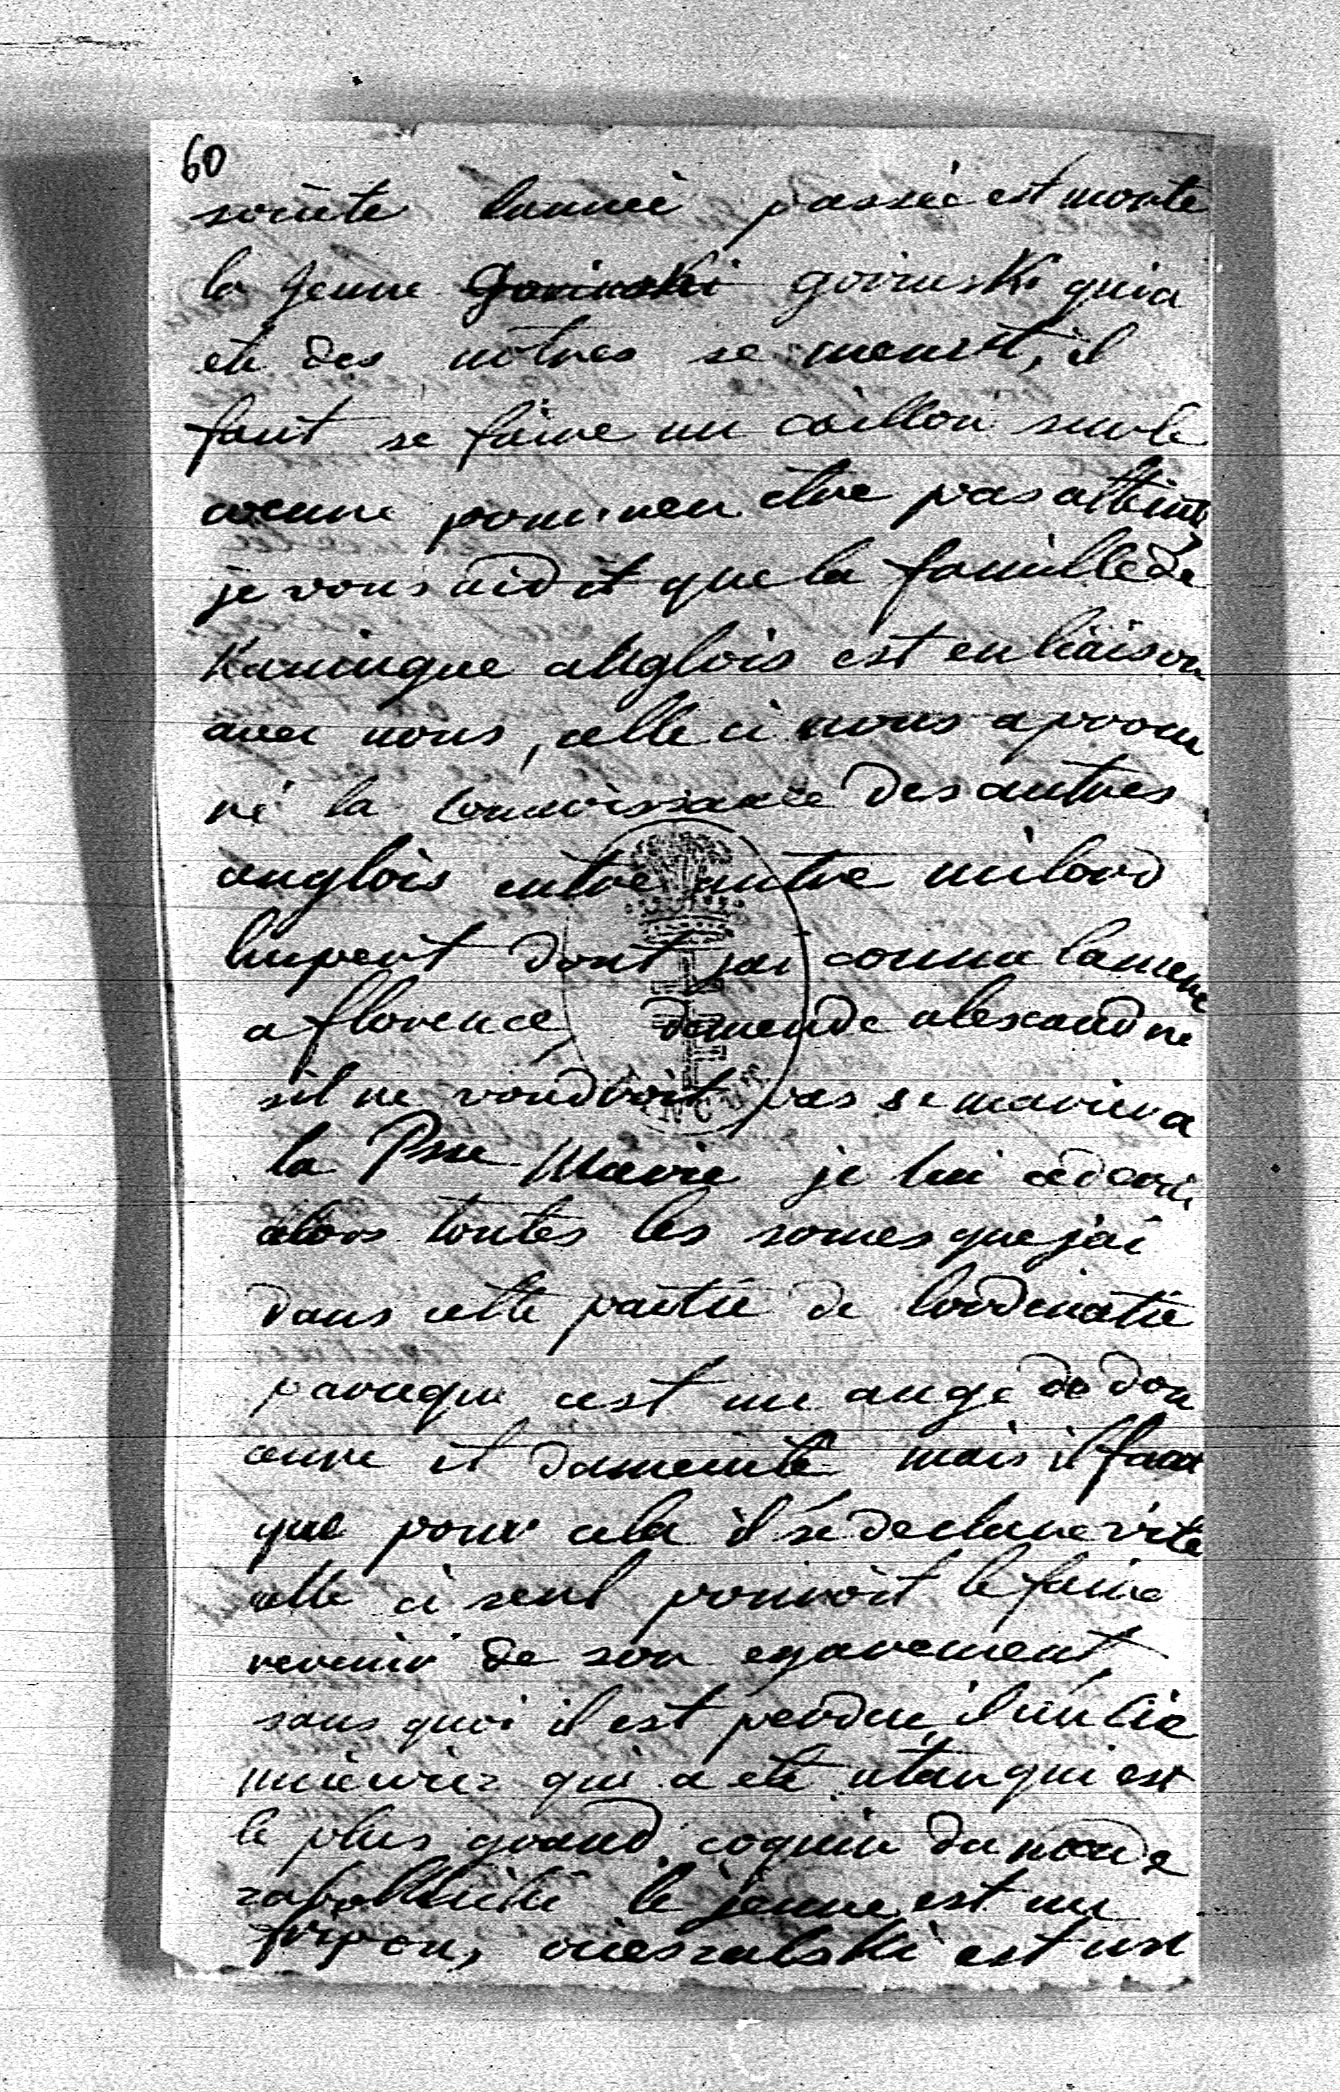 60
societe lannée passée est morte
la jeune Gorinski gorinski quia
ete des notres se meurt, il
faut se faire un caillou sur le
coeure pour nen etre pas atteinte
je vous aidit que la famille de
Kaningue anglois est en liaison
avec nous, celle ci nous a procu
ré la connoissance des autres
anglois entre autre milord
hupert dont jai connu la mere
a florence, demende alexandre
sil ne voudroit pas se marier a
la Psse Marie je lui cederai
alors toutes les somes que jai
dans cette partie de lordinatie
parceque cest un ange de dou
ceure et dameinité mais il faut
que pour cela il se declare vite
celle ci seul pouroit le faire
revenir de son egarement
sans quoi il est perdue, il
qui a eté qui est
le plus grand coquin du monde
le jeune est un
fripon, est un